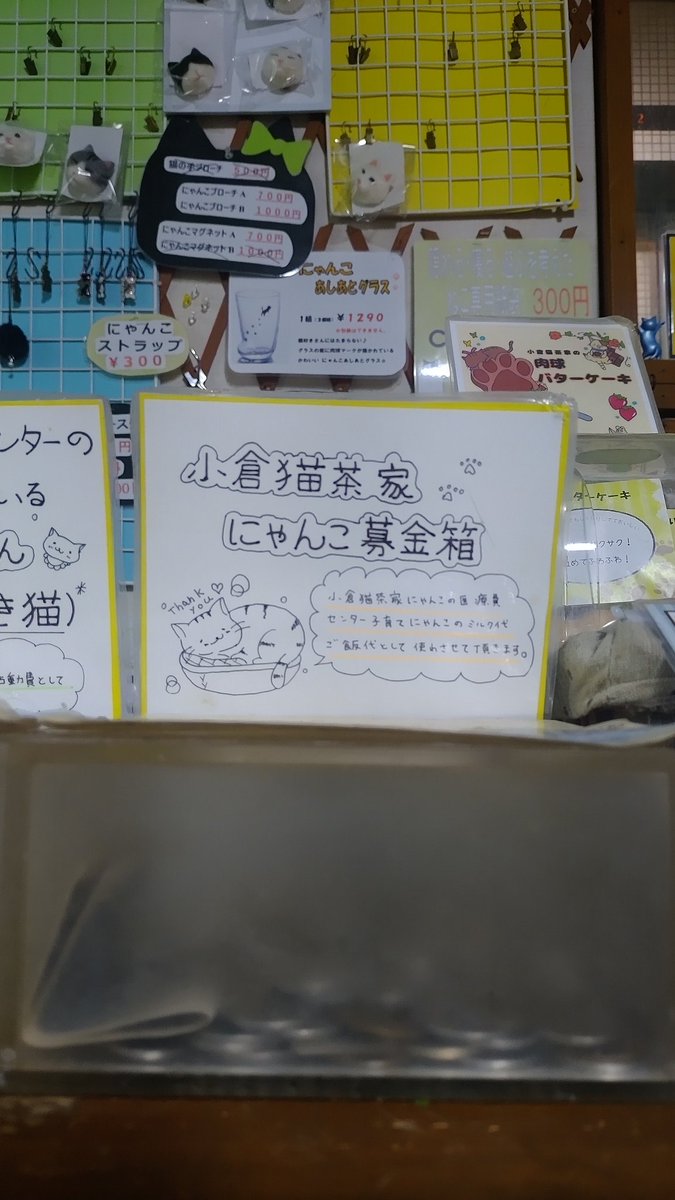 猫の手ブローチ 500円
にゃんこブローチA 700円
にゃんこブローチB 1000円
にゃんこマグネットA 700円
にゃんこマグネットB 1000円
にゃんこ
あしあとグラス
1個 ¥1290
グラスの底に肉球マークが描かれている
かわいい にゃんこあしあとグラス
300円
にゃんこ
ストラップ
¥300
小倉猫茶家の
肉球
バターケーキ
ターケーキ
サクサク!
ふわふわ!
ンターの
いる
ん
き猫)*
動費として
小倉猫茶家
にゃんこ募金箱
Thank you♡
小倉猫茶家にゃんこの医療費
センター子育てにゃんこのミルク代
ご飯代として使わさせて頂きます。